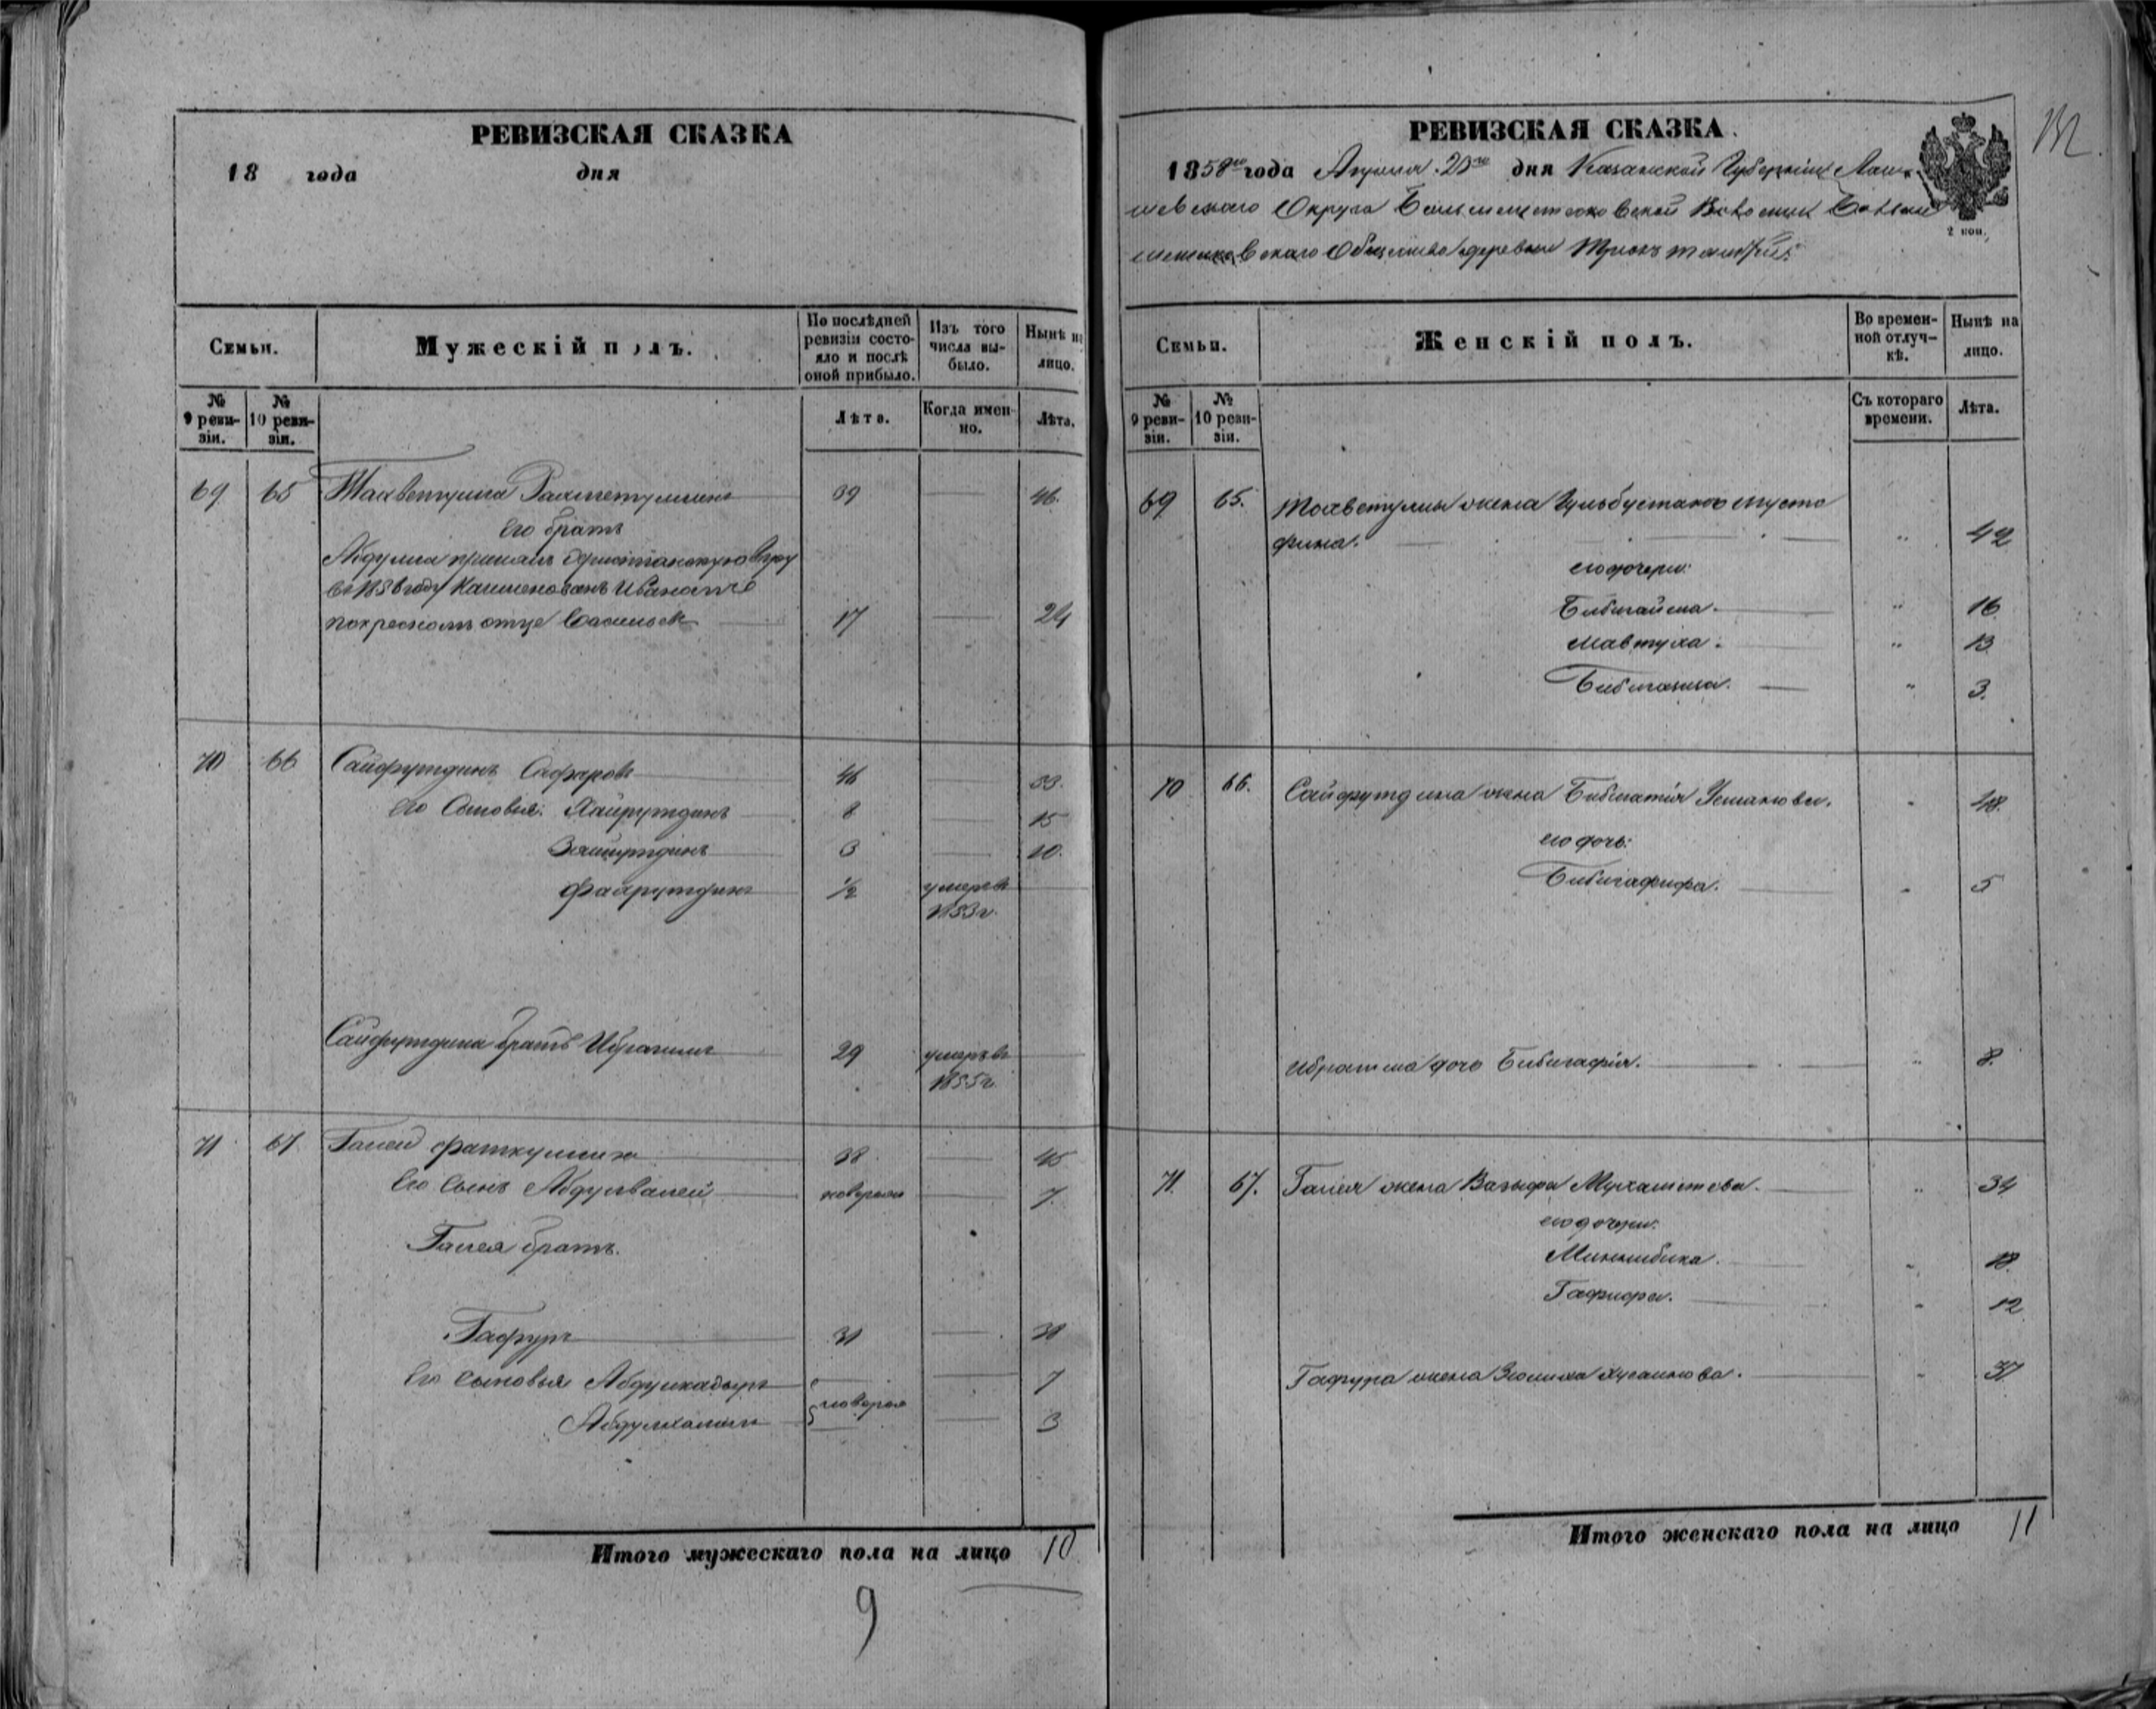 РЕВИЗСКАЯ СКАЗКА
18 года дня
Семьи.
Мужескій полъ.
По послѣдней ревизіи состояло и послѣ оной прибыло.
Изъ того числа выбыло.
Нынѣ на лицо.
№ 9 ревизіи.
№ 10 ревизіи.
Лѣта.
Когда именно.
Лѣта.
69 65 39 46.
Его братъ
Абдулла принялъ христіанскую вѣру
въ году наименованъ Иваномъ
по крестномъ отце 17 24
70 66 Сайфутдинъ Сафаровъ 46 53.
Его Сыновья: Хайрутдинъ 8 15
Зяйнутдинъ 3 10.
Файрутдинъ 1/2 умеръ въ
1853 г.
Сайфутдина братъ Ибрагимъ 29 умеръ въ
1855 г.
71 67 Галей Фаткуллинъ 38 45
Его Сынъ Абдулвалей новорожд 7.
Галея братъ.
Гафуръ 31 38
Его Сыновья Абдулкадыръ 7
новорож
Абдулхалилъ 3
Итого мужескаго пола на лицо 10
9
РЕВИЗСКАЯ СКАЗКА.
1858го года Апрѣля дня Казанской Губерніи Лаи-
шевскаго Округа Волости
Общества деревни
2 коп.
Семьи.
Женскій полъ.
Во временной отлучкѣ.
Нынѣ на лицо.
№ 9 ревизіи.
№ 10 ревизіи.
Съ котораго времени.
Лѣта.
69 65. жена Гульбустана Муста
фина. " 42
его дочери:
Бибигайша. " 16
Мавтуха. " 13
" 3.
70 66. Сайфутдина жена Усманова. " 48.
его дочь:
Бибигафифа. " 5
Ибрагима дочь Бибигафія. " 8.
71. 67. Галея жена Вазыфа Мухаметова. " 34
его дочери:
Миннибика. " 18.
Гафифа. " 12
Гафура жена Хусаинова. " 37
Итого женскаго пола на лицо 11